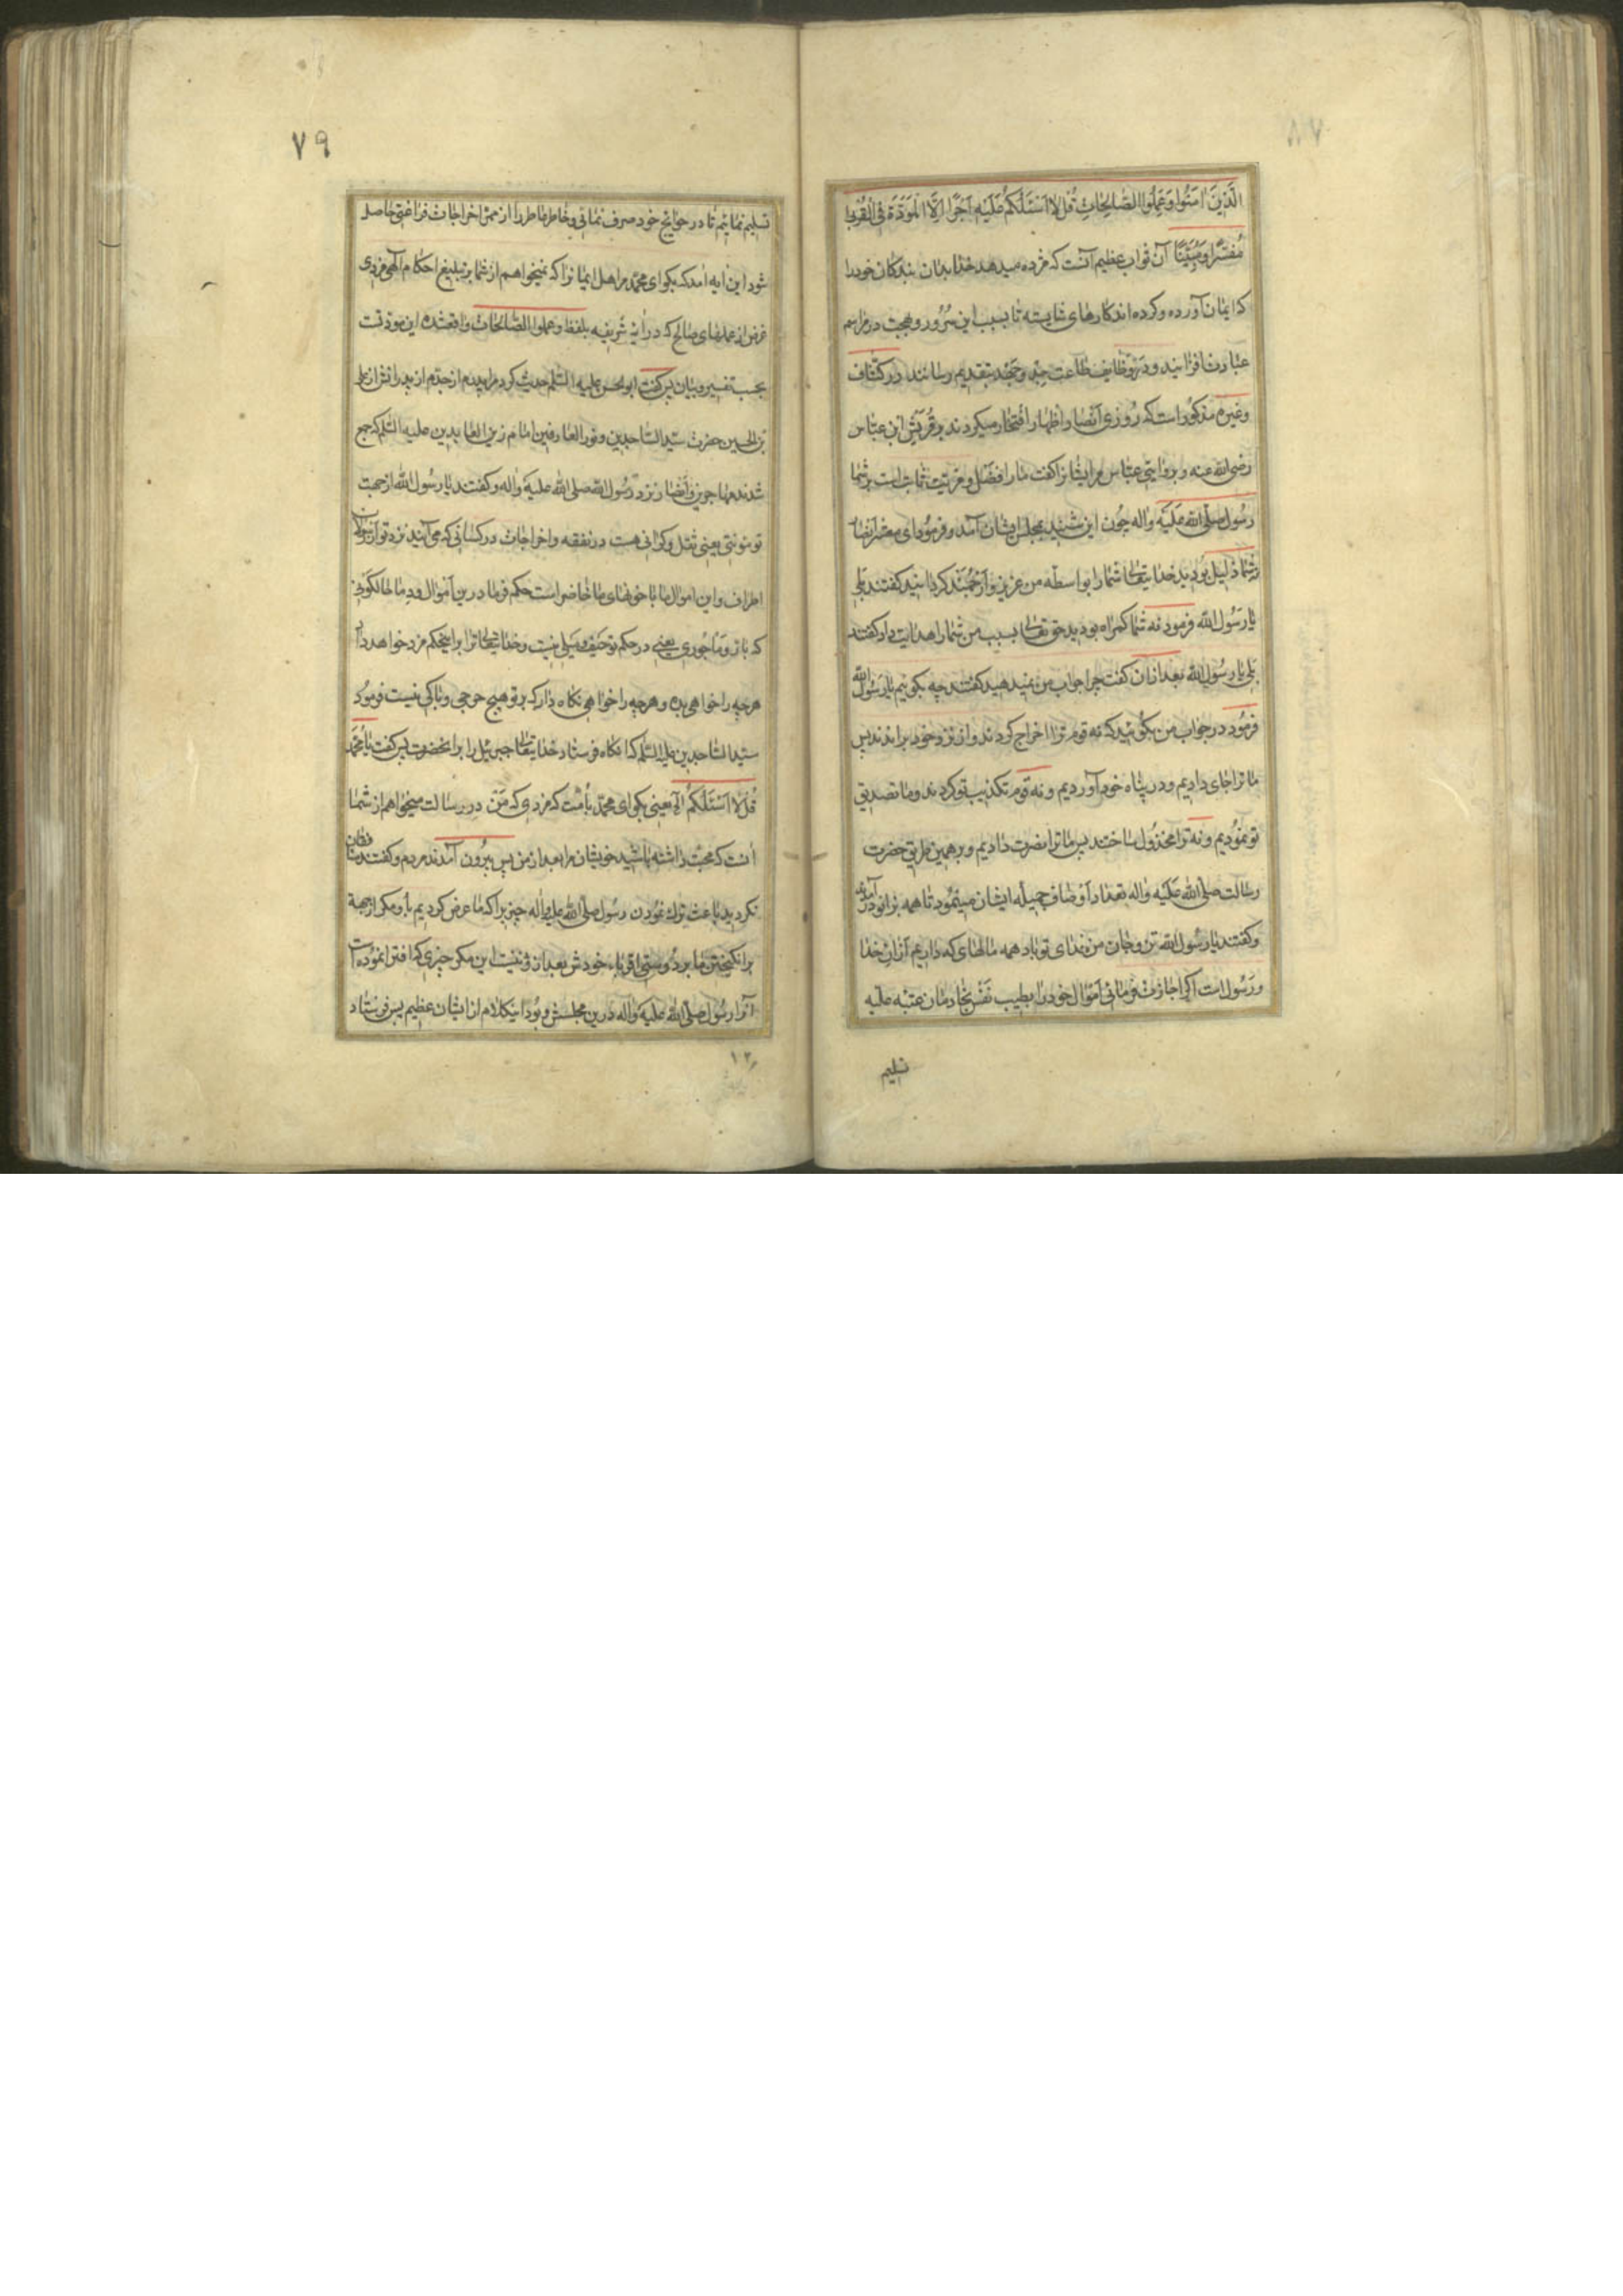 الَّذِینَ اٰمَنُوا وَعَمِلُوا الصّٰالِحٰاتِ قُل لٰا اَسْئَلُكُمْ عَلَیْهِ اَجْرًا اِلَّا الْمَوَدَّةَ فِی الْقُرْبٰی
مُفَسَّرًا وَمُبَیَّنًا آن ثواب عظیم آنست که مژده میدهد خدا بدان بندکان خود را
که ایمان آورده و کرده اند کارهای شایسته تا بسبب این سُرُور و بهجت در مراسم
عبادت افزایند و در وظایف طاعت جِدّ و جَهْد بتقدیم رسانند در کشّاف
و غیره مذکور است که رُوزی اَنْصار اظهار افتخار میکردند بر قُرَیْش ابن عبّاس
رضی الله عنه و بروایتی عبّاس مر ایشانرا کفت ما را فَضْل و مزیّت ثابت است بر شما
رسُول صلّی الله عَلَیْه وٰاله چُون این شنید بمجلس ایشان آمد و فرمُود ای معشر اَنصار
شما ذلیل بُودید خدایتعالی شما را بواسطه من عزیز و اَرْجُمَنْد کردانید کفتند بَلی
یٰا رَسُول اللّه فرمود نه شما کمراه بودید حق تعالی بسبب من شما را هدایت داد کفتند
بَلی یٰا رسُول اللّه بعد ازان کفت چرا جواب من نمیدهید کفتند چه بکوئیم یٰا رَسُول اللّه
فرمُود در جواب من بکُوئید که نه قوم ترا اخراج کردند و از نزد خود براندند پس
ما ترا جای دادیم و در پناه خود آوردیم و نه قوم تکذیب تو کردند و ما تصدیق
تو نمُودیم و نه ترا مخذُول ساختند پس ما ترا نصرت دادیم و برهمین طریق حضرت
رسالت صلّی الله عَلَیْه وٰاله تعداد اَوْصاف جمیله ایشان مینمُود تا همه بزانو در آمدند
و کفتند یٰا رسُول اللّه تن و جان من فدای تو باد همه مالهای که داریم ازانِ خدا
و رَسُول است اکر اجازت فرمائی اَمْوٰال خود را بطیب نَفْس بخادمان عتبه علیّه
تسلیم
٧٩
تسلیم نمائیم تا در حوایج خود صرف نمائی و خاطر عاطر را از ممرّ اخراجات فراغتی حاصل
شود این آیه امد که بکو ای محمّد مر اهل ایمانرا که نمیخواهم از شما بر تبلیغ احکام آلهی مزدی
غرض از عملهای صالح که در آیه شریفه بلفظ و عملوا الصّالحات واقعشده این مودّتست
بحسب تفسیر و بیان پس کفت ابوالحسن علیه السّلم حدیث کرد مرا پدرم از جدّم از پدرانش از علی
بن الحسین حضرت سیّد السّاجدین و نور العارفین امام زین العابدین علیه السّلم که جمع
شدند مهاجرین و اَنصار نزد رسُول اللّه صلی الله علیه وٰاله و کفتند یا رسُول اللّه از جهت
تو مؤنتی یعنی ثقل و کرانی هست در نفقه و اخراجات در کسانی که می آیند نزد تو از رسولان
اطراف و این اموال ما با خونهای ما حاضر است حکم فرما درین اَموال و دمٰا
که بارّ و مٰاجُوری یعنی در حکم تو حَیْف و مَیلی نیست و خدایتعالی ترا برین حکم مزد خواهد داد
هرچه را خواهی بده و هرچه را خواهی نکاه دار که بر تو هیچ حرجی و باکی نیست فرمُود
سیّد السّاجدین علیه السّلم که انکاه فرستاد خدایتعالی جبرئیل را بر انحضرت پس کفت یٰا مُحمّد
قُل لٰا اَسْئَلُكُمْ الآیه یعنی بکو ای محمّد باُمّت که مزدی که مَنْ در رسالت میخواهم از شما
انست که محبّت داشته باشید خویشان مرا بعد از من پس بیرُون آمدند مردم و کفتند منافقان
نکردید باعث ترك نمُودن رسُول صلّی الله علیه وٰاله چیزیرا که ما عرض کردیم بأو مکر از جهة
برانکیختن ما بر دُوستی اقرباء خودش بعد از و نیست این مکر چیزی که افترا نمُوده است
آنرا رسُول صلّی الله علیه وٰاله دَرین مجلسش و بُود اینکلام از ایشان عظیم پس فرستاد